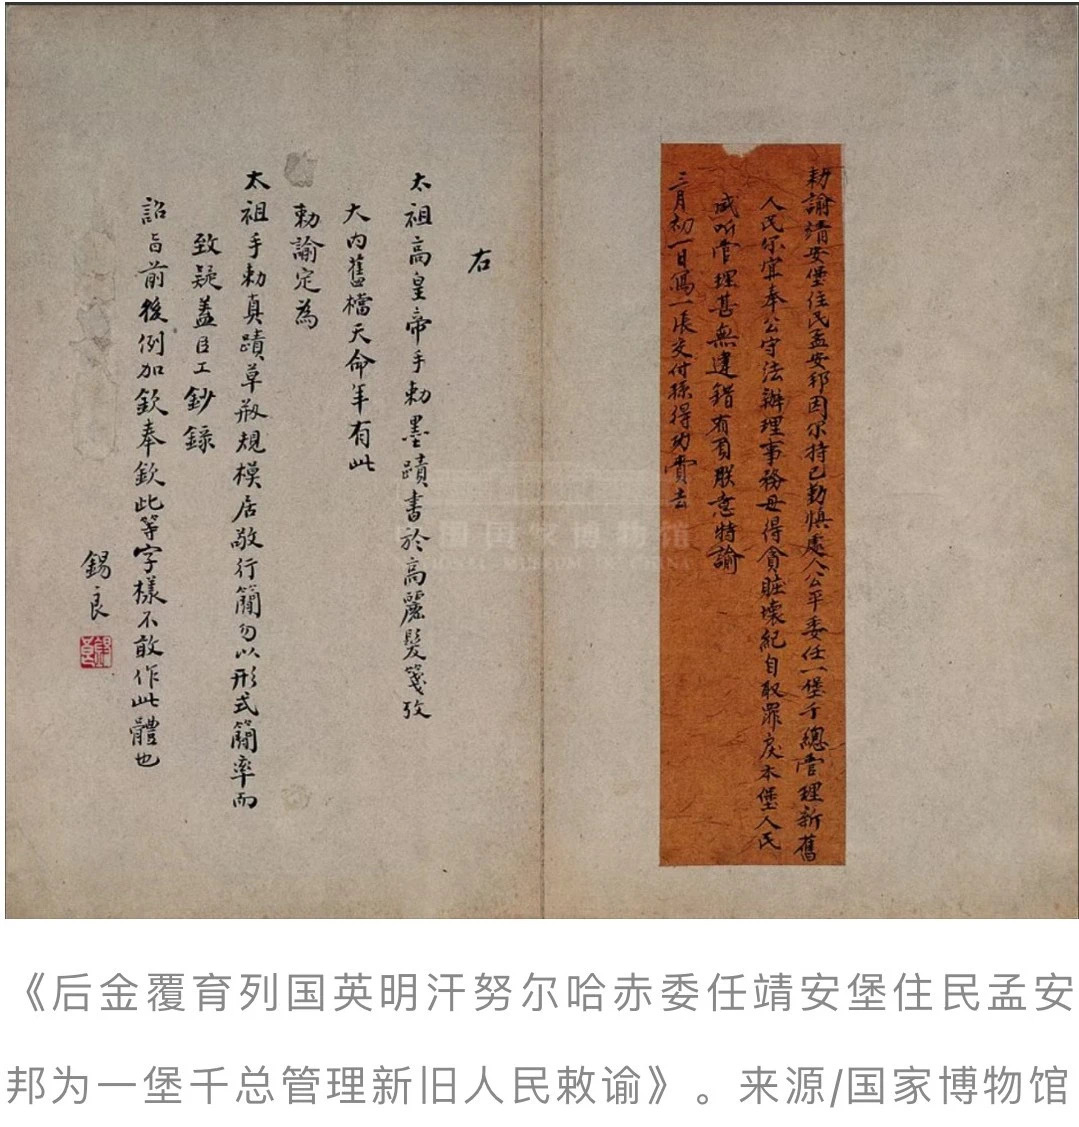 勅諭靖安堡住民孟安邦因尔持己勤慎處人公平委任一堡千總管理新舊
人民尔宜奉公守法辦理事務毋得貪賍壞紀自取罪戾本堡人民
咸听管理甚無違錯有負朕意特諭
三月初一日寫一張交付孫得功賫去
右
太祖高皇帝手勅墨蹟書於高麗髮箋攷
大内舊檔天命年有此
勅諭定為
太祖手勅真蹟草剏規模居敬行簡勿以形式簡率而
致疑蓋臣工鈔録
詔旨前後例加欽奉欽此等字樣不敢作此體也
錫良
中国国家博物馆
NATIONAL MUSEUM OF CHINA
《后金覆育列国英明汗努尔哈赤委任靖安堡住民孟安
邦为一堡千总管理新旧人民敕谕》。来源/国家博物馆